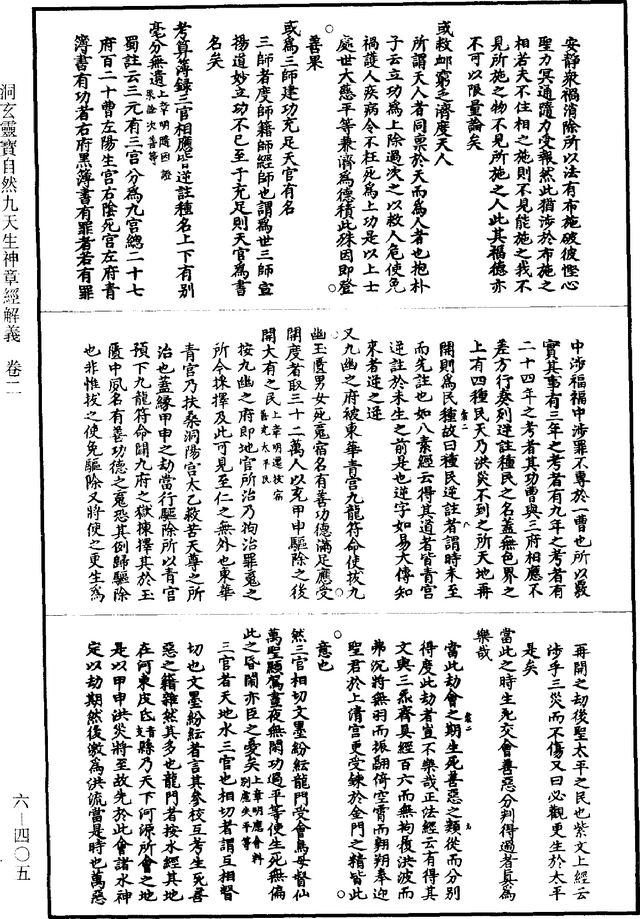 安靜衆禍消除所以法有布施破彼慳心
聖力冥通隨力受報然此猶涉於布施之
相若夫不住相之施則不見能施之我不
見所施之物不見所施之人此其福德亦
不可以限量論矣
或救邺窮乏濟度天人
所謂天人者同稟於天而為人者也抱朴
子云立功為上除過次之以救人危使免
禍護人疾病令不枉死為上功是以上士
處世大慈平等兼濟為德積此殊因即登
善果
或為三師建功充足天官有名
三師者度師籍師經師也謂為世三師宣
揚道妙立功不已至于充足則天官為書
名矣
考算簿録三官相應皆逆註種名上下有別
毫分無遺上章明隨因證果階次善等
蜀註云三元有三官分為九宮總二十七
府百二十曹左陽生宮右陰死宮左府青
簿書有功者右府黑簿書有罪者若有罪
中涉福福中涉罪不專於一曹也所以覈
實其事有三年之考者有九年之考者有
二十四年之考者其功曹與三府相應不
差方行奏列逆註種民之名蓋無色界之
上有四種民天乃洪災不到之所天地再
開則為民種故曰種民逆註者謂時未至
而先註也如八素經云得其道者皆青宮
逆註於未生之前是也逆字如易大傳知
來者逆之逆
又九幽之府被東華青宮九龍符命使拔九
幽玉匱男女死魂宿名有善功德滿足應受
開度者取三十二萬人以充甲申驅除之後
開大有之民上章明選拔宿善充太平民
按九幽之府即地官所治乃拘治罪䰟之
所今採擇及此可見至仁之無外也東華
青宮乃扶桑洞陽宮太乙救苦天尊之所
治也蓋緣甲申之劫當行驅除所以青宮
預下九龍符命開九府之獄棟擇其於玉
匱中夙名有善功德之䰟恐其倒歸驅除
也非惟拔之使免驅除又將使之更生為
再開之劫後聖太平之民也紫文上經云
涉乎三災而不傷又曰必觀更生於太平
是矣
當此之時生死交會善惡分判得過者真為
樂哉
當此劫會之期生死善惡之類從而分別
得度此劫者豈不樂哉正法經云有得其
文與三炁齊真經百六而無拘履洪波而
弗沉將無羽而振翮倚空霄而翱翔奉迎
聖君於上清宮更受鍊於金門之精皆此
意也
然三官相切文墨紛紜龍門受會鳥母督仙
萬聖顯駕晝夜無閑功過平等使生死無偏
此之昏鬧亦臣之憂矣上章明應會料別慮失平等
三官者天地水三官也相切者謂互相督
切也文墨紛紜者言其參校互考生死善
惡之籍雜然其多也龍門者按水經其地
在河東皮氏縣乃天下河源所會之地
是以甲申洪災將至故先於此會諸水神
定以劫期然後激為洪流當是時也萬惡
洞玄靈寶自然九天生神章經解義 卷二
六—四〇五